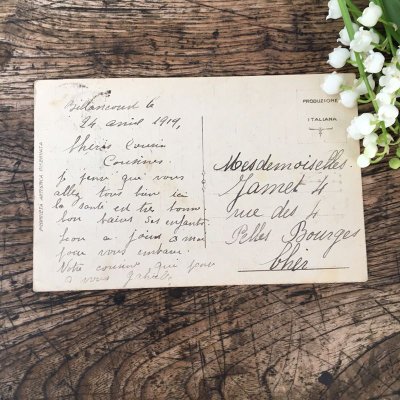 Billancourt le
24 avril 1919,
Chères Cousin
Cousines.
je pense que vous
allez tous bien ici
la santé est très bonne
bon baiser ses enfants
pour vous embrasser.
Notre cousine qui pense
a vous
PRODUZIONE
ITALIANA
Mesdemoiselles
Jamet 4
rue des 4
Pelles Bourges
Cher